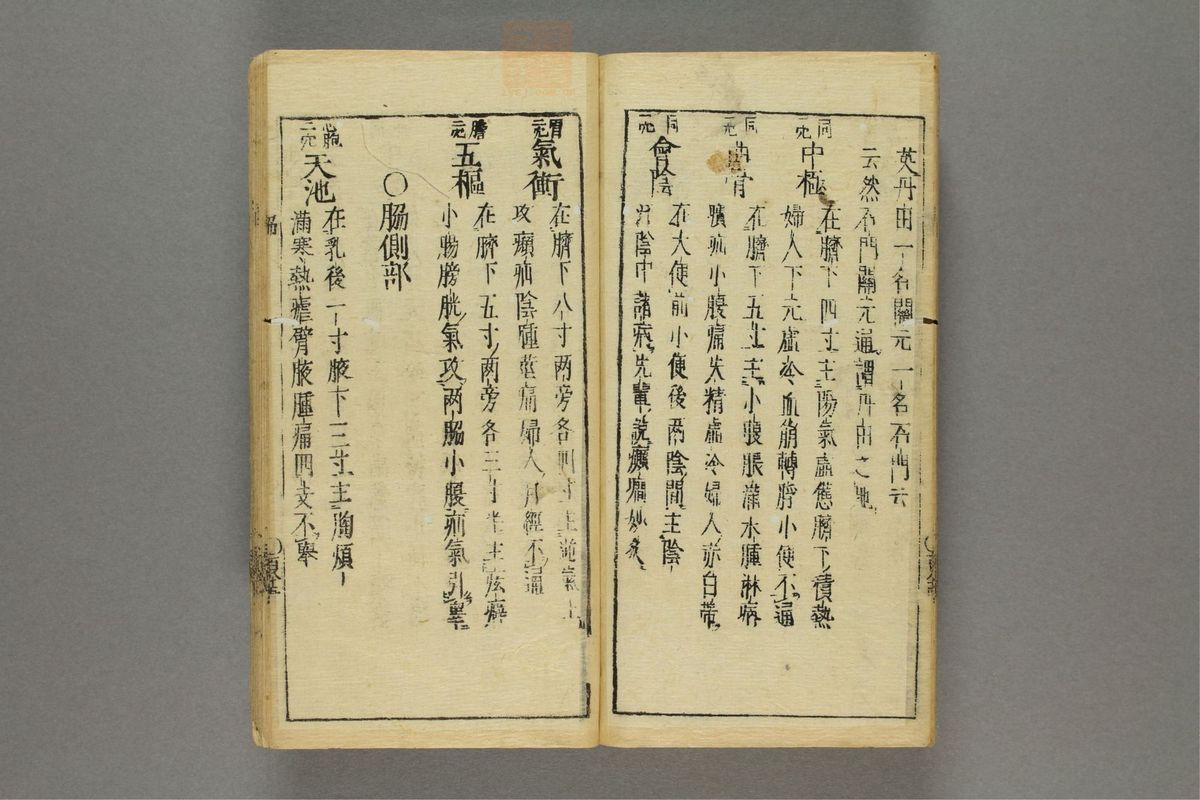 英丹田一名關元一名石門云
云然石門關元通謂丹田之地
同二穴
中極
在臍下四寸主陽氣虛憊臍下積熱
婦人下元虛冷血崩轉脬小便不通
同二穴
骨
在臍下五寸主小腹脹滿水腫淋病
㿗疝小腹痛失精虛冷婦人赤白帶
同二穴
會陰
在大便前小便後兩陰間主陰
汗陰中諸病先輩說癲癇妙灸
胃二穴
氣衝
在臍下八寸两旁各 寸主 氣上
攻㿗疝陰腫莖痛婦人月經不通
膽二穴
五樞
在臍下五寸两旁各三寸半主痃癖
小腸膀胱氣攻两脇小腹疝氣引
○脇側部
心胞二穴
天池
在乳後一寸腋下三寸主胸煩
滿寒熱瘧臂腋腫痛四支不舉